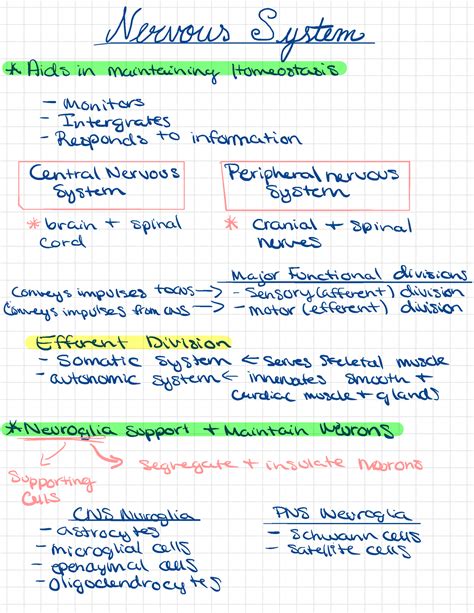 Nervous System
* Aids in maintaining Homeostasis
- Monitors
- Intergrates
- Responds to information
Central Nervous System
* brain + spinal cord
Peripheral nervous system
* cranial + spinal nerves
Major Functional divisions
Conveys impulses to CNS → - Sensory (afferent) division
Conveys impulses from CNS → - motor (efferent) division
Efferent Division
- Somatic System ← Serves Skeletal muscle
- autonomic system ← innervates smooth + cardiac muscle + glands
* Neuroglia Support + Maintain Neurons
Supporting Cells
segregate + insulate neurons
CNS Neuroglia
- astrocytes
- microglial cells
- ependymal cells
- Oligodendrocytes
PNS Neuroglia
- Schwann cells
- satellite cells